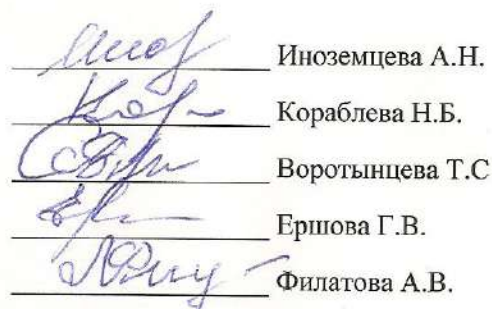 Иноземцева А.Н.
Кораблева Н.Б.
Воротынцева Т.С
Ершова Г.В.
Филатова А.В.